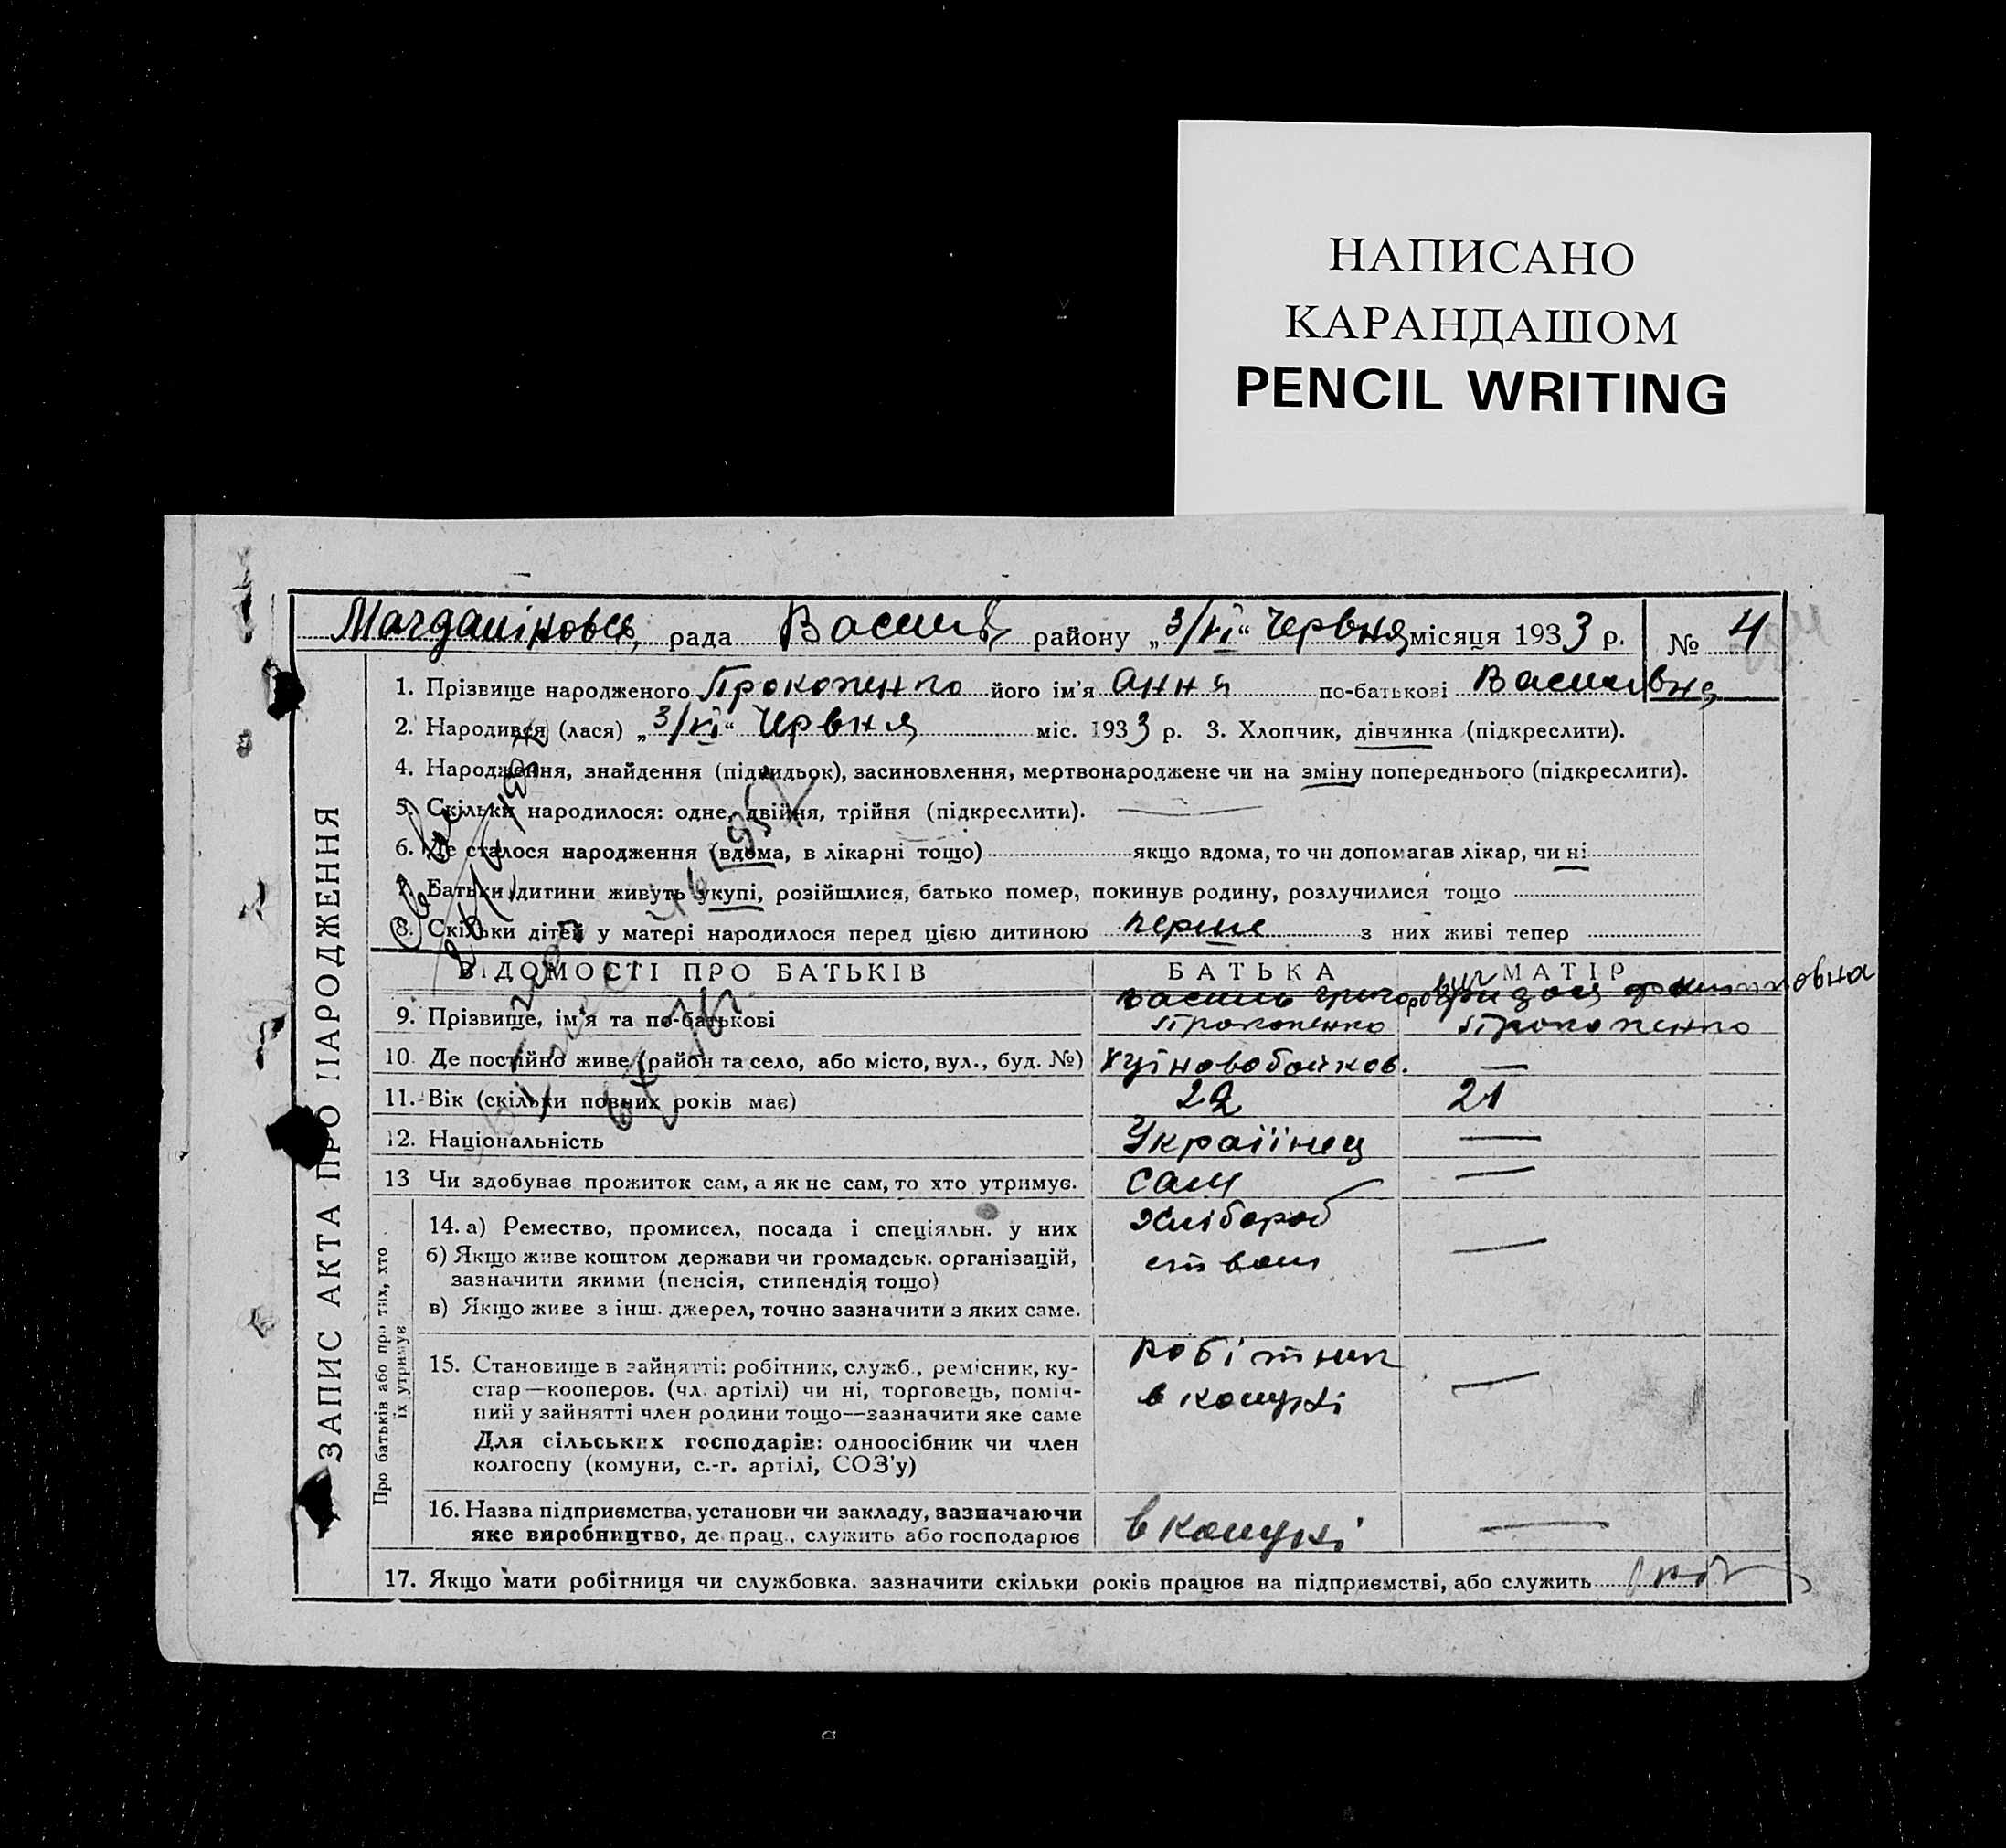 НАПИСАНО
КАРАНДАШОМ
PENCIL WRITING
рада Василів району „3/VI“ Червня місяця 1933 р. № 4
ЗАПИС АКТА ПРО НАРОДЖЕННЯ
1. Прізвище народженого Прокопенко його ім'я Анна по-батькові Василівна
2. Народився (лася) „3/VI“ Червня міс. 1933 р. 3. Хлопчик, дівчинка (підкреслити).
4. Народження, знайдення (підкидьок), засиновлення, мертвонароджене чи на зміну попереднього (підкреслити).
5. Скільки народилося: одне, двійня, трійня (підкреслити).
6. Де сталося народження (вдома, в лікарні тощо) якщо вдома, то чи допомагав лікар, чи ні
7. Батьки дитини живуть укупі, розійшлися, батько помер, покинув родину, розлучилися тощо
8. Скільки дітей у матері народилося перед цією дитиною перше з них живі тепер
ВІДОМОСТІ ПРО БАТЬКІВ БАТЬКА МАТІР
9. Прізвище, ім'я та по-батькові Василь Григорович Прокопенко Прокопенко
10. Де постійно живе (район та село, або місто, вул., буд. №) —
11. Вік (скільки повних років має) 22 21
12. Національність Україінец —
13 Чи здобуває прожиток сам, а як не сам, то хто утримує. сам —
Про батьків або про тих, хто їх утримує
14. а) Ремество, промисел, посада і спеціяльн. у них Хлібороб —
б) Якщо живе коштом держави чи громадськ. організацій, ством
зазначити якими (пенсія, стипендія тощо)
в) Якщо живе з інш. джерел, точно зазначити з яких саме.
15. Становище в зайнятті: робітник, служб., ремісник, ку- робітник
стар—кооперов. (чл. артілі) чи ні, торговець, поміч- в комуні —
ний у зайнятті член родини тощо—зазначити яке саме
Для сільських господарів: одноосібник чи член
колгоспу (комуни, с.-г. артілі, СОЗ'у)
16. Назва підприємства, установи чи закладу, зазначаючи
яке виробництво, де прац., служить або господарює в комуні —
17. Якщо мати робітниця чи службовка. зазначити скільки років працює на підприємстві, або служить